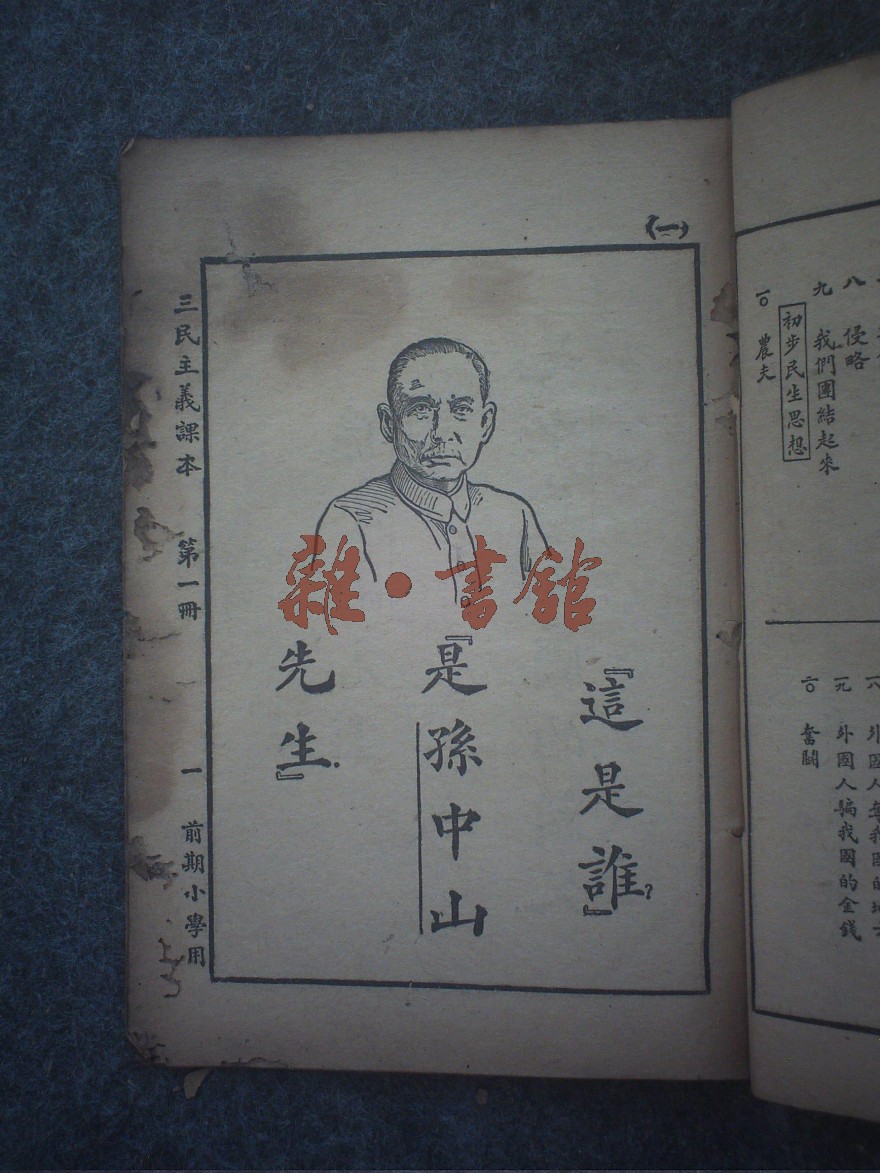 八　侵略
九　我們團結起來
初步民生思想
一〇　農夫
一九　外國人騙我國的金錢
二〇　奮鬭
(一)
『這是誰』?
『是孫中山
先生』.
三民主義課本　第一冊　一　前期小學用
雜·書館